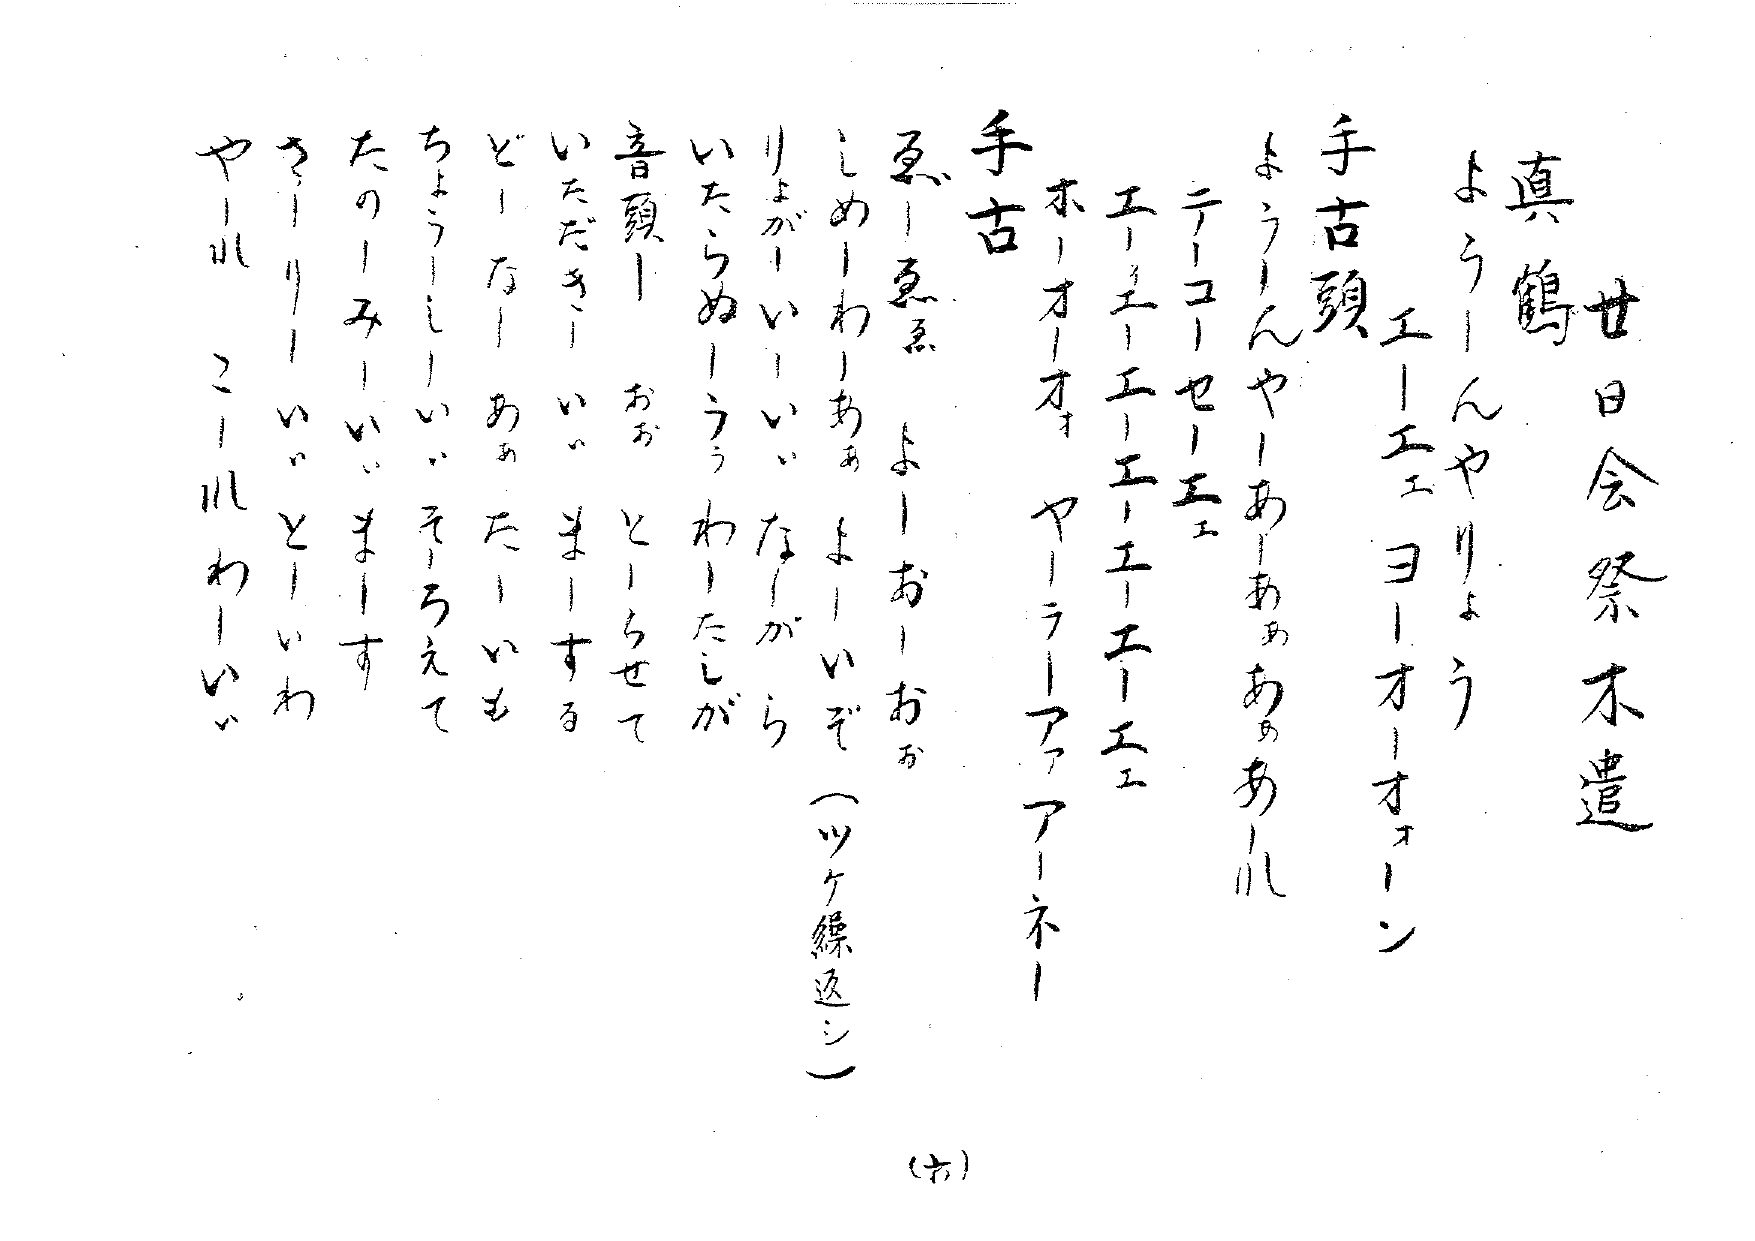 廿日会祭木遣
真鶴
ようーんやりょう
エーエェヨーオーオォーン
手古頭
ようーんやーあーあぁあぁあーれ
テーコーセーエェ
エーェエーエーエーエーエーエェ
ホーオーオォ ヤーラーアァアーネー
手古
ゑーゑゑ よーおーおぉ
しめーわーあぁ よーいぞ(ツケ繰返シ)
りょがーいーいぃ なーがら
いたらぬーうぅ わーたしが
音頭ー おぉ とーらせて
いただきーいぃ まーする
どーなー あぁ たーいも
ちょうーしーいぃ そーろえて
たのーみーいぃ まーす
さーりーいぃとーいわ
やーれ こーれ わーいぃ
(六)